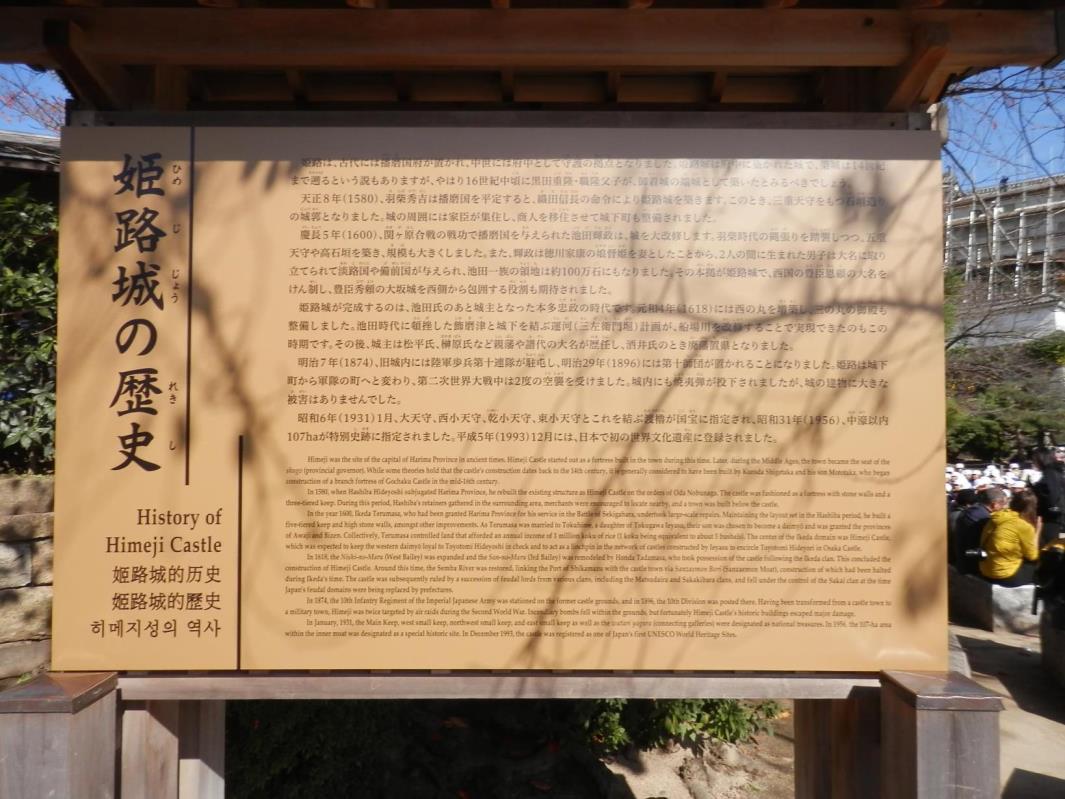 姫路城の歴史
ひめ じ じょう れき し
History of
Himeji Castle
姫路城的历史
姫路城的歷史
히메지성의 역사
姫路は、古代には播磨国府が置かれ、中世には府中として守護の拠点となりました。姫路城は府中に築かれた城で、築城は14世紀
まで遡るという説もありますが、やはり16世紀中頃に黒田重隆・職隆父子が、御着城の端城として築いたとみるべきでしょう。
天正8年(1580)、羽柴秀吉は播磨国を平定すると、織田信長の命令により姫路城を築きます。このとき、三重天守をもつ石垣造り
の城郭となりました。城の周囲には家臣が集住し、商人を移住させて城下町も整備されました。
慶長5年(1600)、関ヶ原合戦の戦功で播磨国を与えられた池田輝政は、城を大改修します。羽柴時代の縄張りを踏襲しつつ、五重
天守や高石垣を築き、規模も大きくしました。また、輝政は徳川家康の娘督姫を妻としたことから、2人の間に生まれた男子は大名に取り
立てられて淡路国や備前国が与えられ、池田一族の領地は約100万石にもなりました。その本拠が姫路城で、西国の豊臣恩顧の大名を
けん制し、豊臣秀頼の大坂城を西側から包囲する役割も期待されました。
姫路城が完成するのは、池田氏のあと城主となった本多忠政の時代です。元和4年(1618)には西の丸を増築し、三の丸の御殿も
整備しました。池田時代に頓挫した飾磨津と城下を結ぶ運河(三左衛門堀)計画が、船場川を改修することで実現できたのもこの
時期です。その後、城主は松平氏、榊原氏など親藩や譜代の大名が歴任し、酒井氏のとき廃藩置県となりました。
明治7年(1874)、旧城内には陸軍歩兵第十連隊が駐屯し、明治29年(1896)には第十師団が置かれることになりました。姫路は城下
町から軍隊の町へと変わり、第二次世界大戦中は2度の空襲を受けました。城内にも焼夷弾が投下されましたが、城の建物に大きな
被害はありませんでした。
昭和6年(1931)1月、大天守、西小天守、乾小天守、東小天守とこれを結ぶ渡櫓が国宝に指定され、昭和31年(1956)、中濠以内
107haが特別史跡に指定されました。平成5年(1993)12月には、日本で初の世界文化遺産に登録されました。
Himeji was the site of the capital of Harima Province in ancient times. Himeji Castle started out as a fortress built in the town during this time. Later, during the Middle Ages, the town became the seat of the
shugo (provincial governor). While some theories hold that the castle's construction dates back to the 14th century, it is generally considered to have been built by Kuroda Shigetaka and his son Mototaka, who began
construction of a branch fortress of Gochaku Castle in the mid-16th century.
In 1580, when Hashiba Hideyoshi subjugated Harima Province, he rebuilt the existing structure as Himeji Castle on the orders of Oda Nobunaga. The castle was fashioned as a fortress with stone walls and a
three-tiered keep. During this period, Hashiba's retainers gathered in the surrounding area, merchants were encouraged to locate nearby, and a town was built below the castle.
In the year 1600, Ikeda Terumasa, who had been granted Harima Province for his service in the Battle of Sekigahara, undertook large-scale repairs. Maintaining the layout set in the Hashiba period, he built a
five-tiered keep and high stone walls, amongst other improvements. As Terumasa was married to Tokuhime, a daughter of Tokugawa Ieyasu, their son was chosen to become a daimyō and was granted the provinces
of Awaji and Bizen. Collectively, Terumasa controlled land that afforded an annual income of 1 million koku of rice (1 koku being equivalent to about 5 bushels). The center of the Ikeda domain was Himeji Castle,
which was expected to keep the western daimyō loyal to Toyotomi Hideyoshi in check and to act as a linchpin in the network of castles constructed by Ieyasu to encircle Toyotomi Hideyori in Osaka Castle.
In 1618, the Nishi-no-Maru (West Bailey) was expanded and the San-no-Maru (3rd Bailey) was remodeled by Honda Tadamasa, who took possession of the castle following the Ikeda clan. This concluded the
construction of Himeji Castle. Around this time, the Semba River was restored, linking the Port of Shikamatsu with the castle town via Sanzaemon Bori (Sanzaemon Moat), construction of which had been halted
during Ikeda's time. The castle was subsequently ruled by a succession of feudal lords from various clans, including the Matsudaira and Sakakibara clans, and fell under the control of the Sakai clan at the time
Japan's feudal domains were being replaced by prefectures.
In 1874, the 10th Infantry Regiment of the Imperial Japanese Army was stationed on the former castle grounds, and in 1896, the 10th Division was posted there. Having been transformed from a castle town to
a military town, Himeji was twice targeted by air raids during the Second World War. Incendiary bombs fell within the grounds, but fortunately Himeji Castle's historic buildings escaped major damage.
In January, 1931, the Main Keep, west small keep, northwest small keep, and east small keep as well as the watari yagura (connecting galleries) were designated as national treasures. In 1956, the 107-ha area
within the inner moat was designated as a special historic site. In December 1993, the castle was registered as one of Japan's first UNESCO World Heritage Sites.